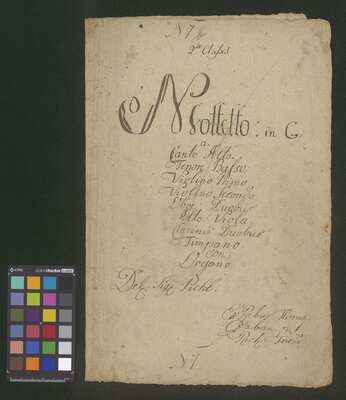 N 7
2dæ Classis
Mottetto: in G.
a
Canto Alto.
Tenore Basso.
Violino Primo.
Violino Secondo
Oboe Duobus
Alto Viola
Clarinis Duobus
Timpano
Con
Organo
Del Sig: Pichl.
N 7